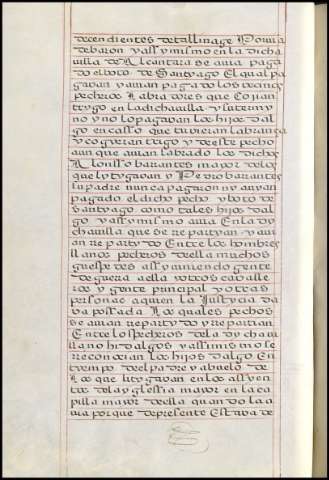 decendientes de tal linage Por via
de baron y assy mismo en la dicha
villa de Alcantara se avia paga
do el boto de Santyago El qual pa
gavan y avian pagado los vecinos
pecheros labradores que cojian
trygo en la dicha villa y su termy
no y no lo pagavan los hijos dal
go en casso que tuvieran labrança
y cogieran trigo y de este pecho
aun que avian labrado los dichos
Alonsso barantes mayor de los
que lytygavan y Pedro barantes
su padre nunca pagaron ny avyan
pagado el dicho pecho y boto de
Santyago como tales hijos dal
go y assy mismo avia En la dy
cha villa que se repartyan y avi
an repartydo Entre los hombres
llanos pecheros della muchos
guespedes assy aviendo gente
de guerra a ella y otros cavalle
ros y gente principal y otras
personas a quien la Justycia da
va possada Los quales pechos
se avian repartydo y repartian
Entre los pecheros de la dy cha vi
lla no hidalgos y assi mismo se
reconocian los hijos dalgo En
tyempo del padre y abuelo de
Los que litygavan en los assyen
tos de la yglessia mayor en la ca
pilla mayor de ella quando la a
via porque de presente Estava de